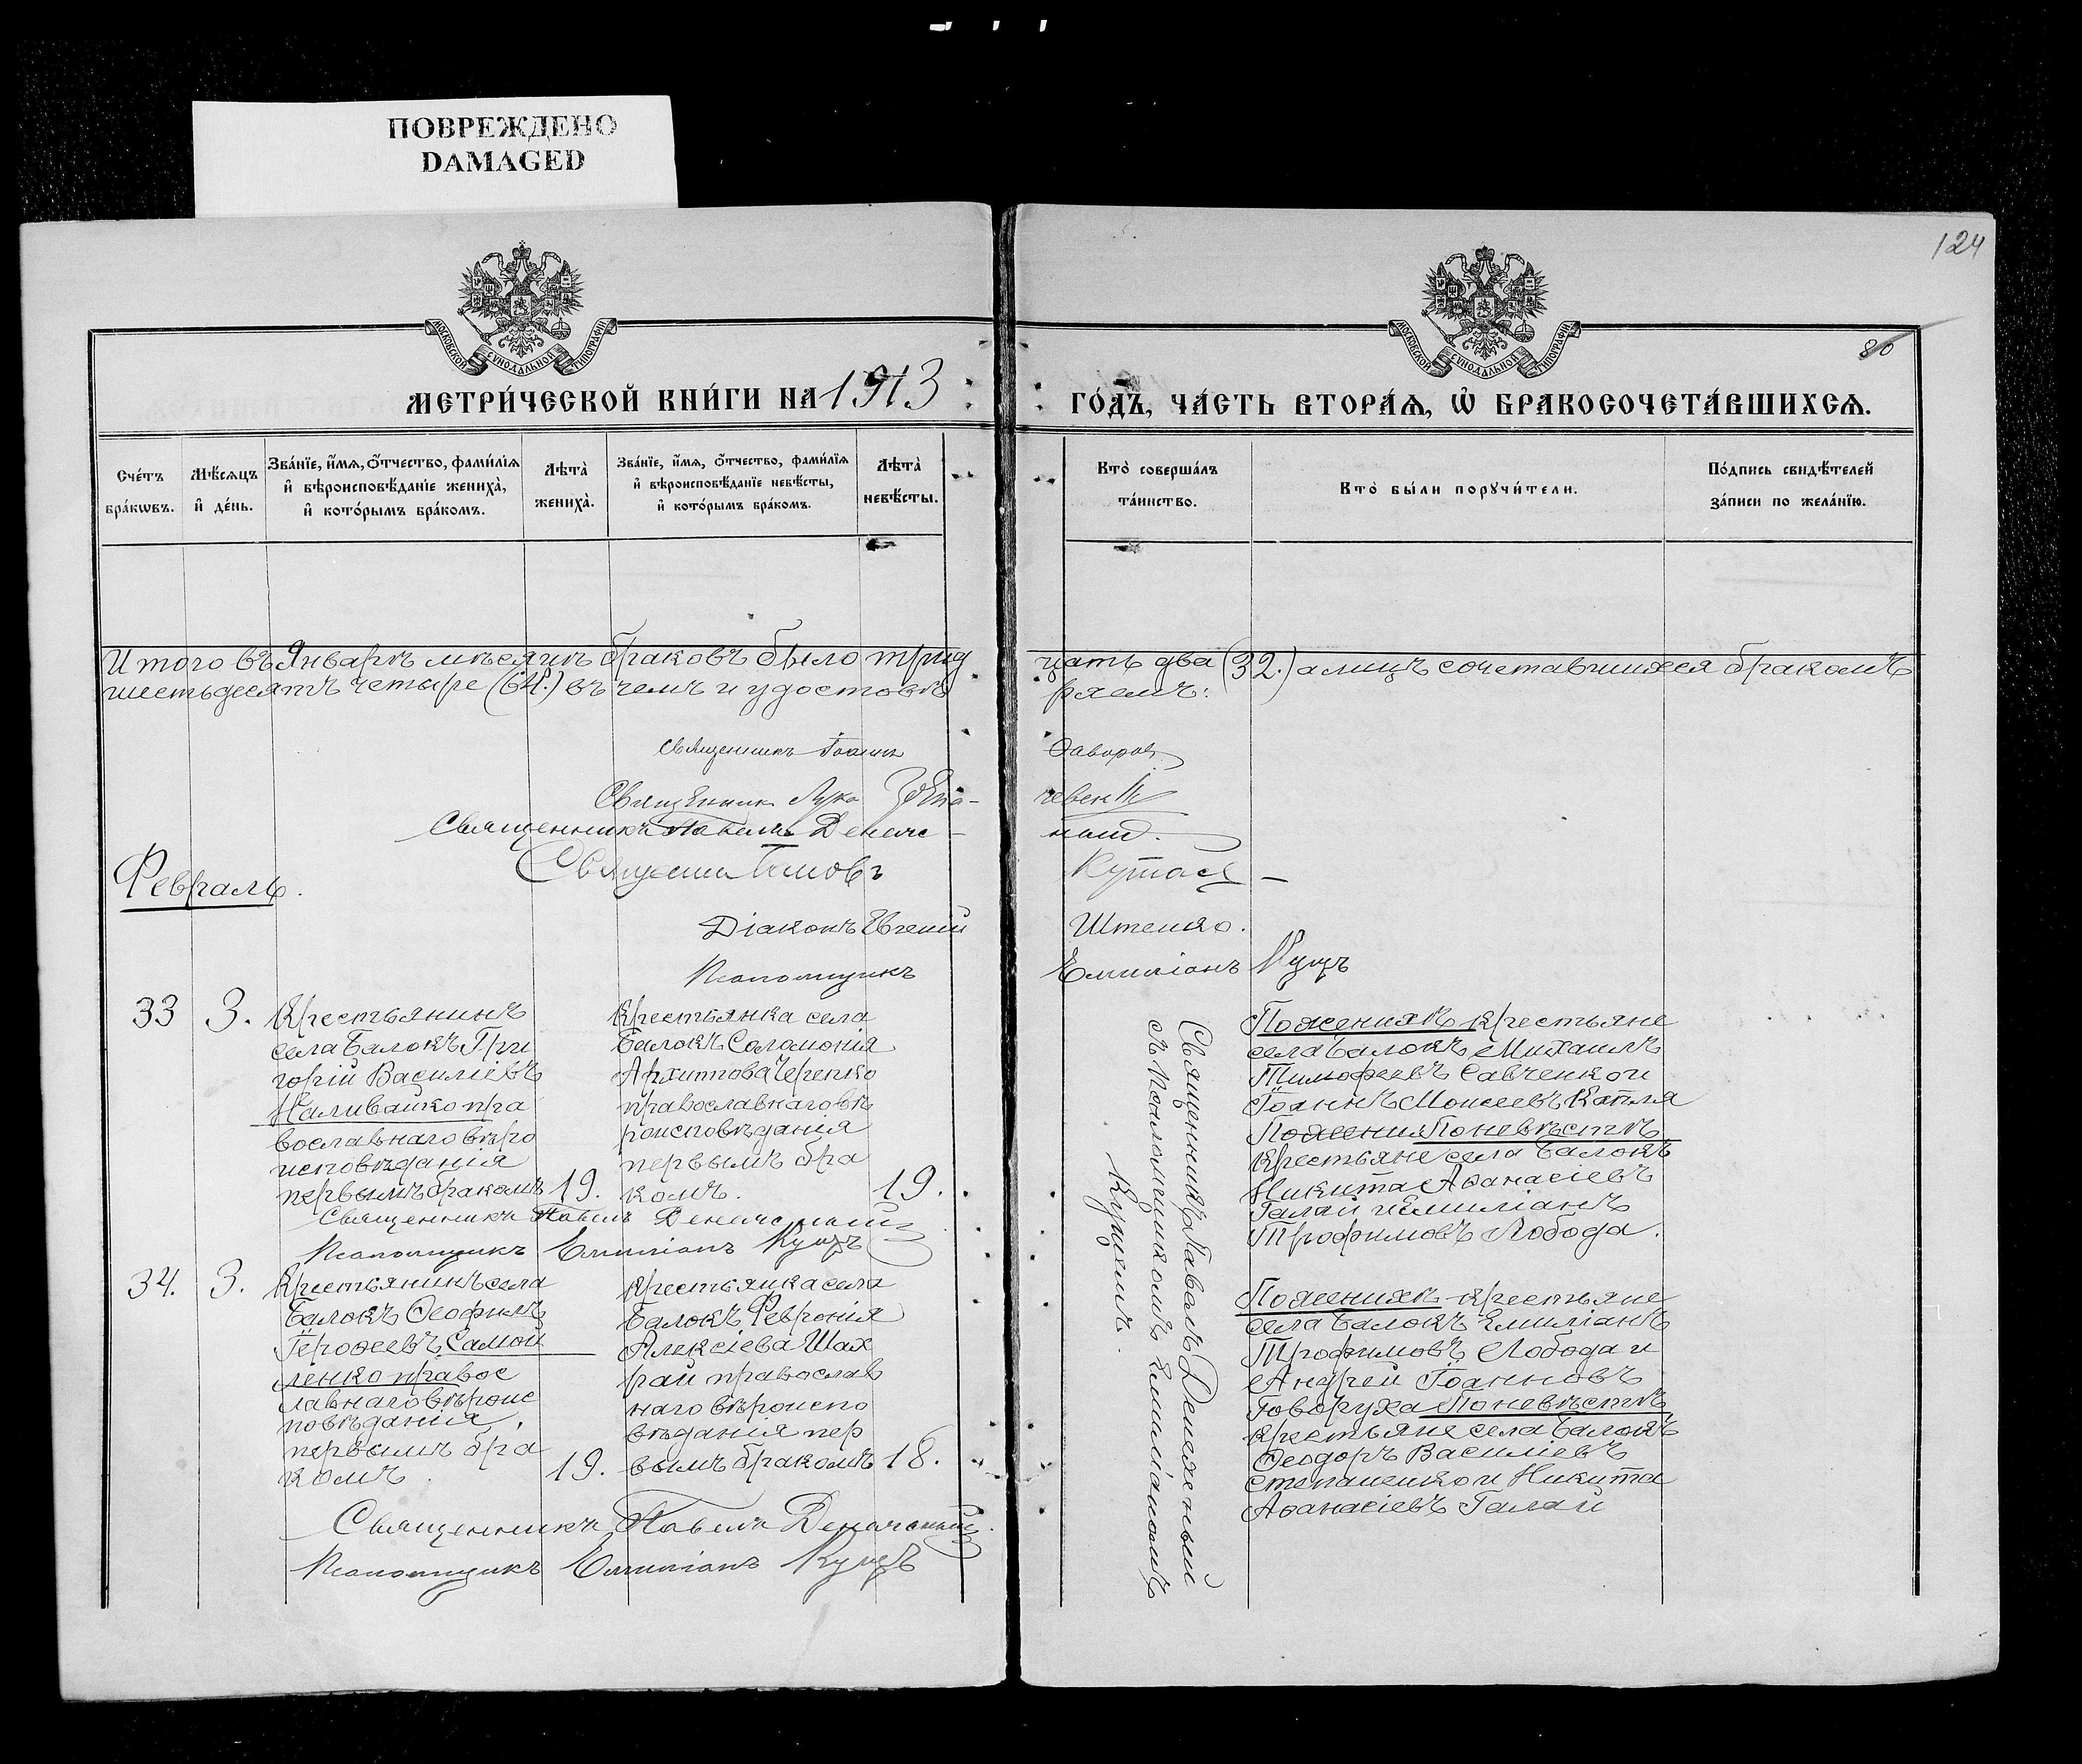 ПОВРЕЖДЕНО
DAMAGED
124
80
МОСКОВСКОЙ СѴНОДАЛЬНОЙ ТИПОГРАФІИ
МОСКОВСКОЙ СѴНОДАЛЬНОЙ ТИПОГРАФІИ
МЕТРИ́ЧЕСКОЙ КНИ́ГИ НА 1913
ГО́ДЪ, ЧА́СТЬ ВТОРА́Ѧ, Ѡ҆ БРАКОСОЧЕТА́ВШИХСѦ.
Сче́тъ бра́кѡвъ.
Мѣ́сѧцъ и҆ де́нь.
Зва́нїе, и҆́мѧ, ѻ҆́тчество, фами́лїѧ
и҆ вѣроисповѣ́данїе жениха̀,
и҆ кото́рымъ бра́комъ.
Лѣта̀ жениха̀.
Зва́нїе, и҆́мѧ, ѻ҆́тчество, фами́лїѧ
и҆ вѣроисповѣ́данїе невѣ́сты,
и҆ кото́рымъ бра́комъ.
Лѣта̀ невѣ́сты.
Кто̀ соверша́лъ
та́инство.
Кто̀ бы́ли порꙋчи́тели.
По́дпись свидѣ́телей
за́писи по жела́нїю.
Итого въ Январѣ мѣсяцѣ браковъ было трид
цать два (32.) а лицъ сочетавшихся бракомъ
шестьдесятъ четыре (64.) въ чемъ и удостовѣ
ряемъ:
Священникъ Іоаннъ
Священникъ Лука
Священникъ Павелъ Денеж-
ный.
Священ
Февраль.
Діаконъ Евгеній
Штенко.
Псаломщикъ
Емиліанъ Куцъ
33
3.
Крестьянинъ
села Балокъ Гри
горій Василіевъ
Наливайко пра
вославнаго вѣро
исповѣданія
первымъ бракомъ
19.
Крестьянка села
Балокъ Соломонія
Архиппова Черепко
православнаго вѣ
роисповѣданія
первымъ бра
комъ.
19.
Священникъ Павелъ Денежный
Псаломщикъ Емиліанъ Куцъ
Священникъ Павелъ Денежный
съ Псаломщикомъ Емиліаномъ
Куцемъ.
По женихѣ крестьяне
села Балокъ Михаилъ
Тимофеевъ Савченко и
Іоаннъ Моисеевъ Капля
По жених По невѣстѣ
крестьяне села Балокъ
Никита Аѳанасіевъ
Галай и Емиліанъ
Трофимовъ Лобода.
34.
3.
Крестьянинъ села
Балокъ Ѳеофилъ
Іероѳеевъ Самой
ленко правос
лавнаго вѣроис
повѣданія,
первымъ бра
комъ.
19.
Крестьянка села
Балокъ Февронія
Алексіева Шах
рай православ
наго вѣроиспо
вѣданія пер
вымъ бракомъ
18.
По женихѣ крестьяне
села Балокъ Емиліанъ
Трофимовъ Лобода и
Андрей Іоанновъ
Говоруха По невѣстѣ
крестьяне села Балокъ
Ѳеодоръ Василіевъ
Степаненко и Никита
Аѳанасіевъ Галай
Священникъ Павелъ Денежный
Псаломщикъ Емиліанъ Куцъ